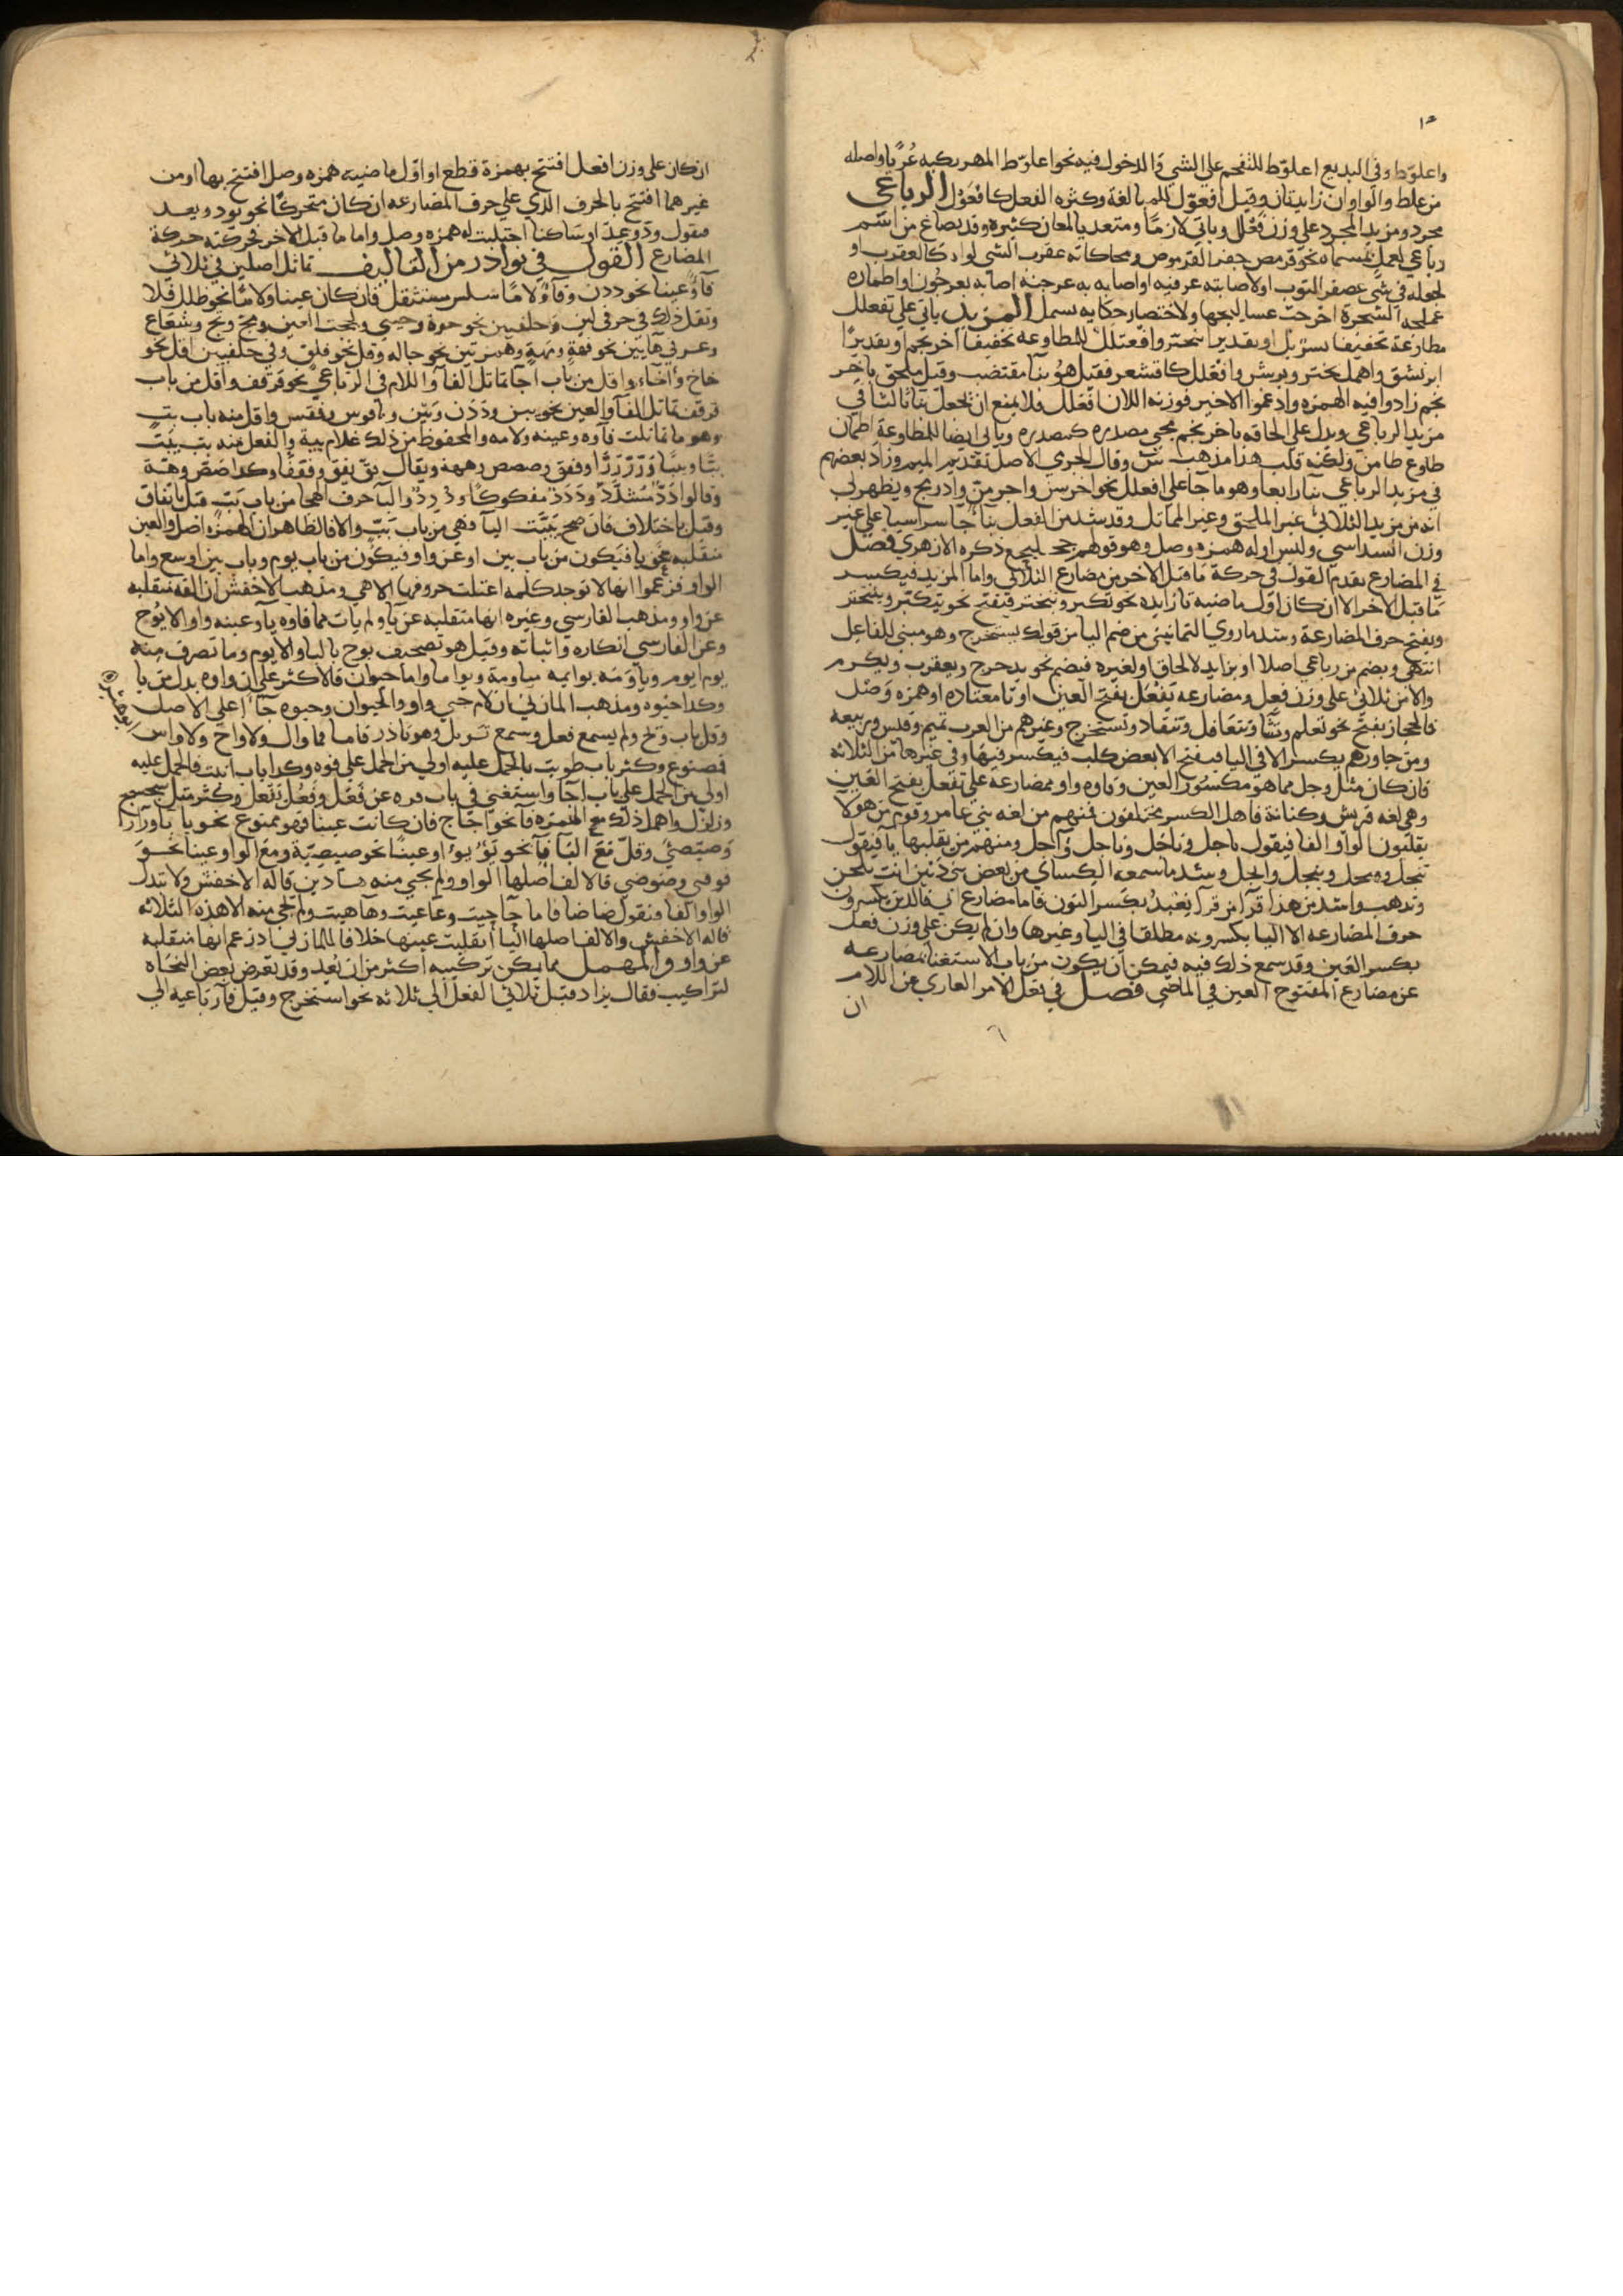 واعلوّط وفي البديع اعلوّط للتقحم على الشي والدخول فيه نحو اعلوّط المهر ركبه عُريًا واصله
من علط والواوان زايدتان وقيل افعوّل للمبالغة وكثره الفعل كافعَوْل الرباعي
مجرد ومزيد المجرد على وزن فعلل وياتي لازمًا ومتعديا لمعان كثيره وقد يصاغ من اسم
رباعي لعمل بمسماه نحو قرمص حفر القرموص ومحاكاته عقرب الشي لواه كالعقرب او
لجعله في شي عصفر الثوب او لاصابته عرقبه او اصابه به عرجنه اصابه بعرجون او اظهاره
عسلجه الشجرة اخرجت عساليجها ولاختصار حكايه بسمل المزيد ياتي على تفعلل
مطاوعة تحقيقا تسربل او تقديرا تبختر وافعنلل للمطاوعه تحقيقا احرنجم او تقديرًا
ابرنشق واهمل بختر وبرشق وافعلل كاقشعر فقيل هو بنا مقتضب وقيل ملحق باحر
نجم زادوا فيه الهمزه وادغموا الاخير فوزنه الان افعلل فلا يمنع ان تجعل بنا ثالثا في
مزيد الرباعي ويدل على الحاقه باحرنجم مجي مصدره كمصدره وياتي ايضا للمطاوعة اطمان
طاوع طامن ولكنه قلب هذا مذهب س وقال الجرمي الاصل تقديم الميم وزاد بعضهم
في مزيد الرباعي بنا رابعا وهو ما جا على افعلل نحو اخرمس واجرمز وادرمج ويظهر لي
انه من مزيد الثلاثي غير الملحق وغير المماثل وقد شذ من الفعل بنا جا سداسيا على غير
وزن السداسي وليس اوله همزه وصل وهو قولهم جحلنجع ذكره الازهري فصل
في المضارع تقدم القول في حركة ما قبل الاخر من مضارع الثلاثي واما المزيد فيكسر
ما قبل الاخر الا ان كان اول ماضيه تا زايده نحو تكبر وتبختر فتفتح نحو يتكبر ويتبختر
ويفتح حرف المضارعة وشذ ما روي الثمانيني من ضم اليا من قولك يستخرج وهو مبني للفاعل
انتهى ويضم من رباعي اصلا او بزايد لالحاق او لغيره فيضم نحو يدحرج ويعقرب ويكرم
والا من ثلاثي على وزن فعِل ومضارعه يَفعَل بفتح العين او تا معتاده او همزه وصل
فالحجاز يفتح نحو تعلم وننشا وتتغافل وتنقاد وتستخرج وغيرهم من العرب تميم وقيس وربيعه
ومن جاورهم يكسر الا في اليا فيفتح الا بعض كلب فيكسر فيها وفي غيرها من الثلاثه
فان كان مثل وجل مما هو مكسور العين وفاوه واو بمضارعه على تفعل بفتح العين
وهي لغه قريش وكنانة فاهل الكسر يختلفون فمنهم من لغه بني عامر وقوم من هولا
يقلبون الواو الفا فيقول ياجل وناجل وتاجل وآجل ومنهم من يقلبها يآ فيقول
تيجل وهو ييجل ونيجل وايجل وشذ ما سمعه الكساي من بعض بني دثين انت تلحن
وتذهب وامتد من هذا قرآ من قرآ نِعْبد بكسر النون فاما مضارع ابى فالذين يكسرون
حرف المضارعه الا اليا يكسرونه مطلقا في اليا وغيرها وان لم يكن على وزن فعل
بكسر العين وقد سمع ذلك فيه فيمكن ان يكون من باب الاستغنا بمضارعه
عن مضارع المفتوح العين في الماضي فصل في نقل الامر العاري من اللام
ان
ان كان على وزن افعل افتتح بهمزة قطع او اوّل ماضيه همزه وصل افتتح بها او من
غيرهما افتتح بالحرف الذي على حرف المضارعه ان كان متحركًا نحو يود ويعد
فيقول ودّ وعِدْ او ساكنا اجتلبت له همزه وصل واما ما قبل الاخر فحركته حركة
المضارع القول في نوادر من التاليف تماثل اصلين في ثلاثي
فآ وعينا نحو ددن وفآ ولامًا سلس مستثقل فان كان عينا ولامًا نحو طلل فلا
ويقل ذلك في حرفي لين وحلقيين نحو حوة وحيي ولححت العين وبخّ وشعاع
وعز في هآيين نحو فهة ومهه وهمزتين نحو جاله وقل نحو قلق وفي حلقيين اقل نحو
خاخ وأجآء واقل من باب اجآ تماثل الفآ واللام في الرباعي نحو قرقف واقل من باب
قرقف تماثل الفآ والعين نحو ببن وددن وبيّن وبابوس وققس واقل منه باب ببّ
وهو ما تماثلت فآوه وعينه ولامه والمحفوظ من ذلك غلام ببة والفعل منه ببّ يبَبّ
ببًّا وببًا وزرّ زرًّا وققق وصصص وههه ويقال يقّ يقق وققفًا وكذا صصّ وههّة
وقالوا ددّ مُشددّ وددد مفكوكًا واليآ حرف الهجا من باب ببّ قيل باتفاق
وقيل باختلاف فان صح يَيَيْت اليآ فهي من باب ببّ والا فالظاهر ان الهمزه اصل والعين
منقلبه عن يا فيكون من باب بين او عن واو فيكون من باب يوم وباب بين اوسع واما
الواو فزعموا انها لا توجد كلمه اعتلت حروفها الا هي ومذهب الاخفش ان الفه منقلبه
عن واو ومذهب الفارسي وغيره انها منقلبه عن يآ ولم يات مما فاوه يآ وعينه واو الا يُوح
وعن الفارسي انكاره واثباته وقيل هو تصحيف بوح بالبا والا يوم وما تصرف منه
يوم ايوم وياوَمَه يوايمه مياومة ويواما واما حيوان فالاكثر على ان واوه بدل من يا
وكذا حيوه ومذهب المازني ان لام حيي واو والحيوان وحيوه جآ على الاصل
وقل باب ويح ولم يسمع فعل وسمع تويل وهو نادر فاما فما وال ولا واح ولا واس
فمصنوع وكثر باب طويت بالحمل عليه اولى من الحمل على قوه وكذا باب اتيت فالحمل عليه
اولى من الحمل على باب اجآ واستغني في باب قره عن فَعَل وفعُل بفعِل وكثر مثل سجسج
وزلزل واهمل ذلك مع الهمزه فآ نحو اجاج فان كانت عينا فهو ممنوع نحو بابا ورارا
وصيصئ وقلّ مع اليآ فآ نحو يؤيؤ او عينًا نحو صيصيّة ومع الواو عينا نحو
قوقى وضوضى فالالف اصلها الواو ولم يجي منه هادين قاله الاخفش ولا تبدل
الواو الفا فتقول ضاضا فاما حآحيت وعآعيت وهآهيت ولم يجي منه الا هذه الثلاثه
قاله الاخفش والالف اصلها اليآ انقلبت عينها خلافا للمازني اذ زعم انها منقلبه
عن واو والمهمل مما يمكن تركيبه اكثر من ان يُعد وقد تعرض بعض النحاه
لتراكيب فقال يزاد قبل ثلاثي الفعل الى ثلاثه نحو استخرج وقيل فآ رباعيه الى